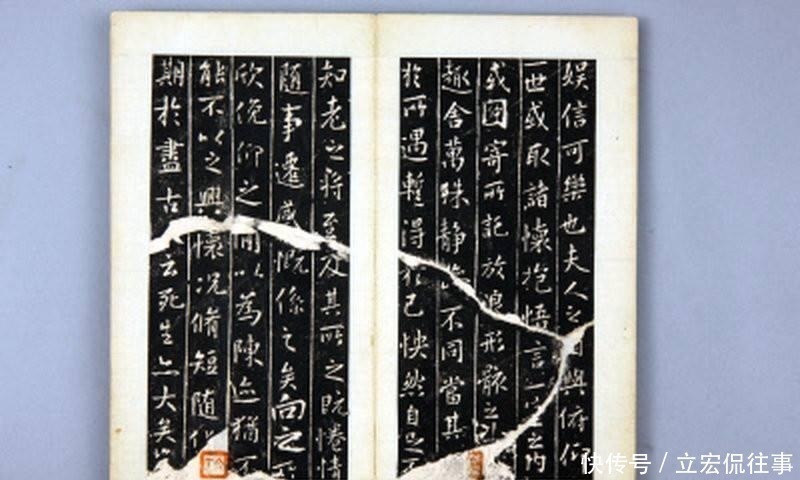 娛信可樂也夫人之相與俯仰
一世或取諸懷抱悟言一室之内
或因寄所託放浪形骸之
趣舍萬殊静躁不同當其
於所遇蹔得於己怏然自足不
知老之将至及其所之既惓情
隨事遷感慨係之矣向之所
欣俛仰之間以為陳迹猶不
能不以之興懷況脩短随化
期於盡古人云死生亦大矣
快传号 / 立宏侃往事